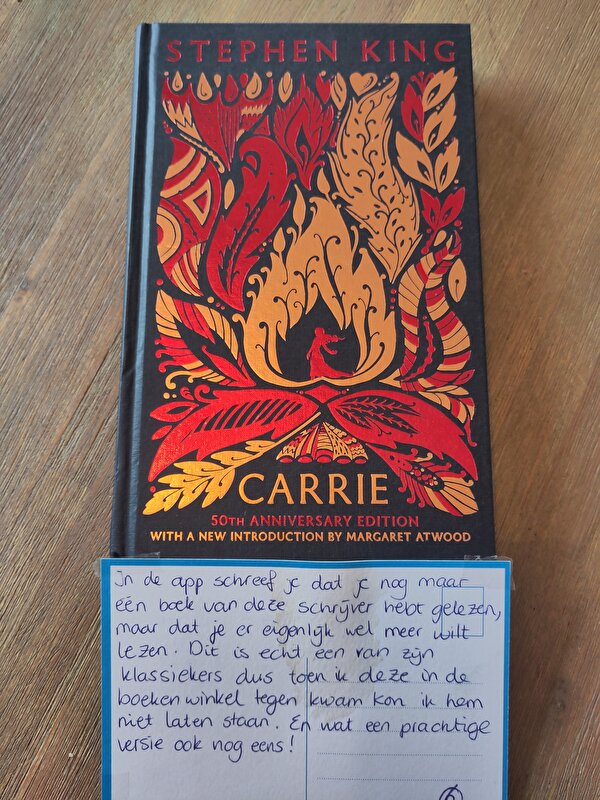 STEPHEN KING
CARRIE
50TH ANNIVERSARY EDITION
WITH A NEW INTRODUCTION BY MARGARET ATWOOD
In de app schreef je dat je nog maar
één boek van deze schrijver hebt gelezen,
maar dat je er eigenlijk wel meer wilt
lezen. Dit is echt een van zijn
klassiekers dus toen ik deze in de
boekenwinkel tegen kwam kon ik hem
niet laten staan. En wat een prachtige
versie ook nog eens!